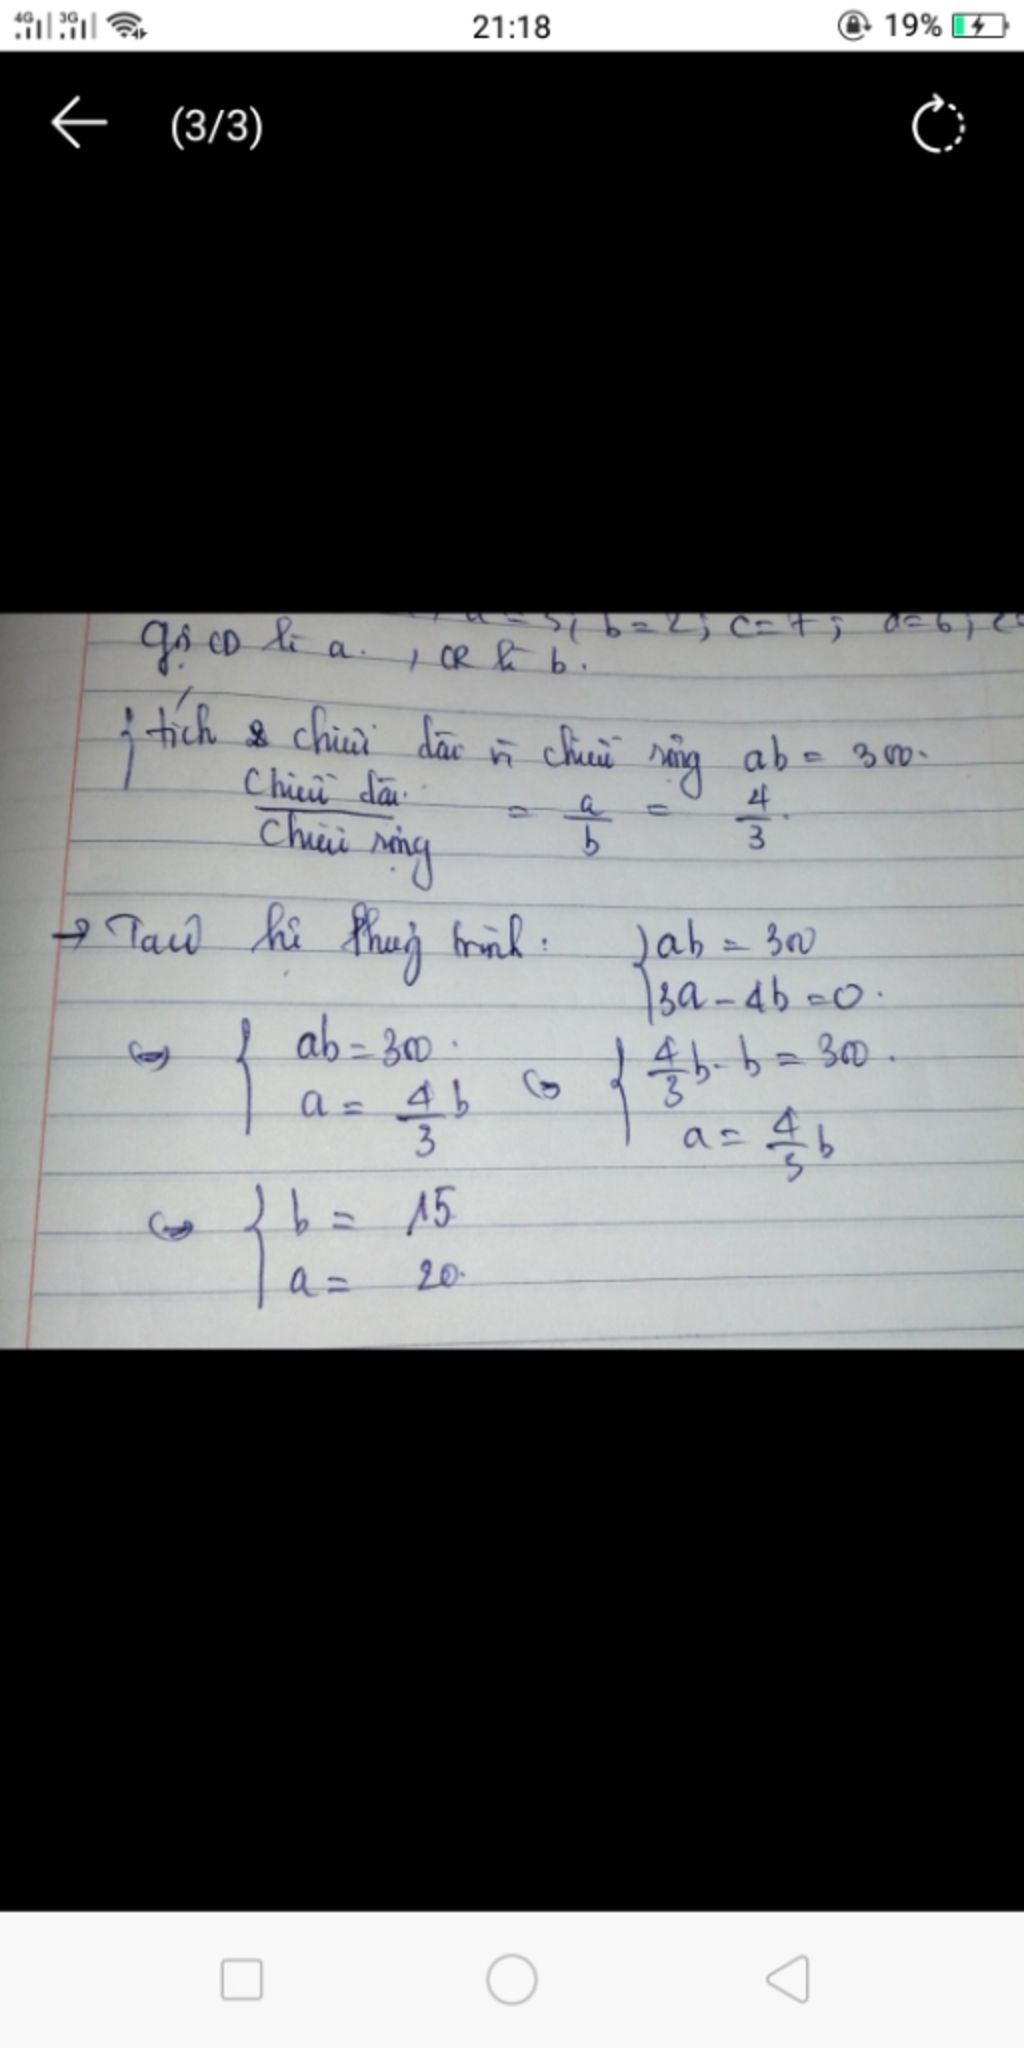 4G 3G 21:18 19%
(3/3)
a=5, b=2; c=7; d=6;
Gọi CD là a. , CR là b.
{ tích chiều dài và chiều rộng ab = 300.
Chiều dài / Chiều rộng = a/b = 4/3.
→ Ta có hệ phương trình: { ab = 300
3a - 4b = 0.
⇔ { ab = 300. ⇔ { 4/3 b. b = 300.
a = 4/3 b a = 4/3 b
⇔ { b = 15
a = 20.